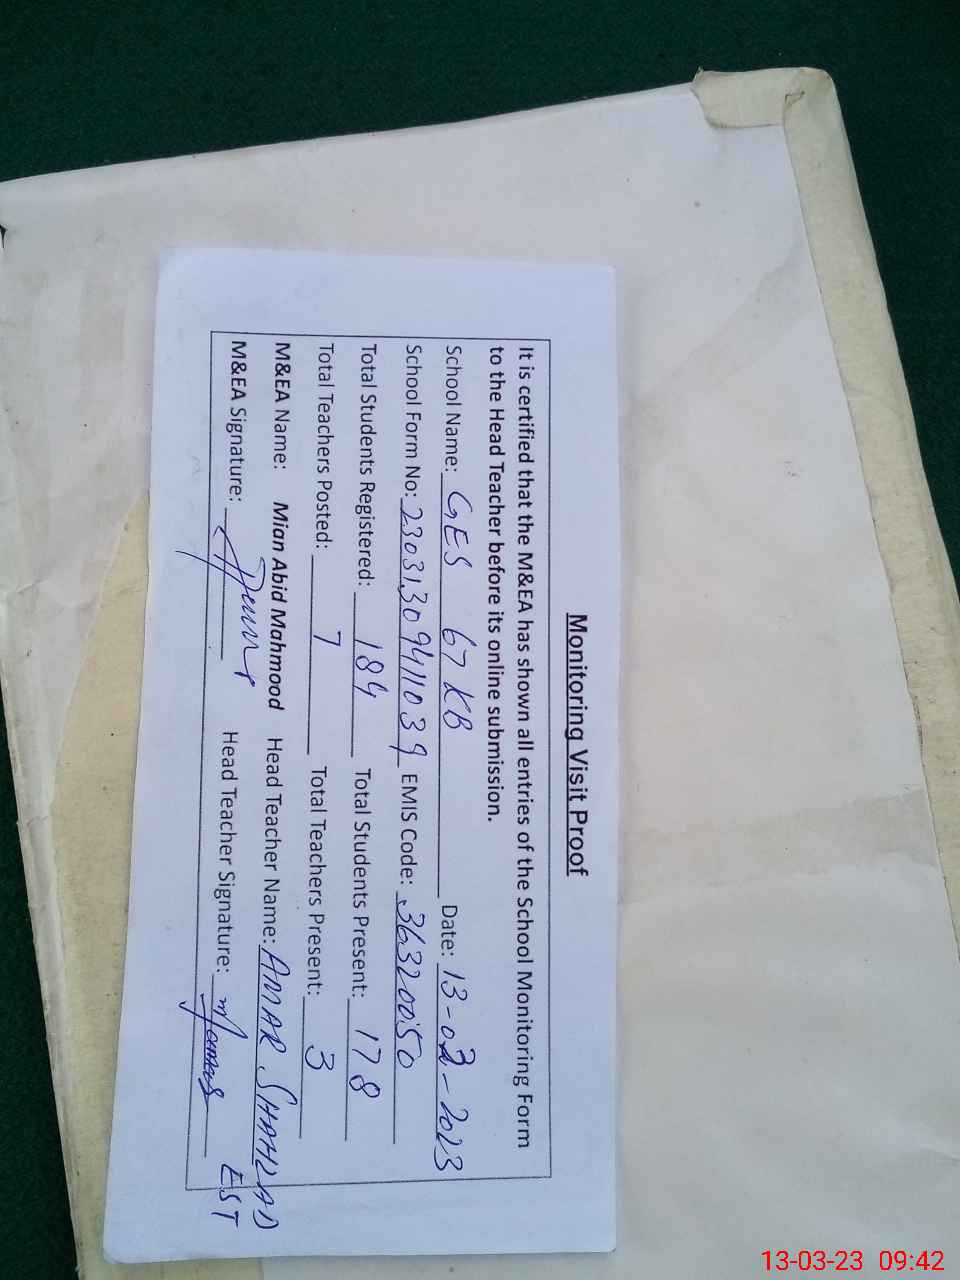 Monitoring Visit Proof
It is certified that the M&EA has shown all entries of the School Monitoring Form
to the Head Teacher before its online submission.
School Name: GES 67 KB Date: 13-03-2023
School Form No: 23031309411039 EMIS Code: 36320050
Total Students Registered: 184 Total Students Present: 178
Total Teachers Posted: 7 Total Teachers Present: 3
M&EA Name: Mian Abid Mahmood Head Teacher Name: AMAR SHAHZAD
M&EA Signature: Head Teacher Signature: EST
13-03-23 09:42